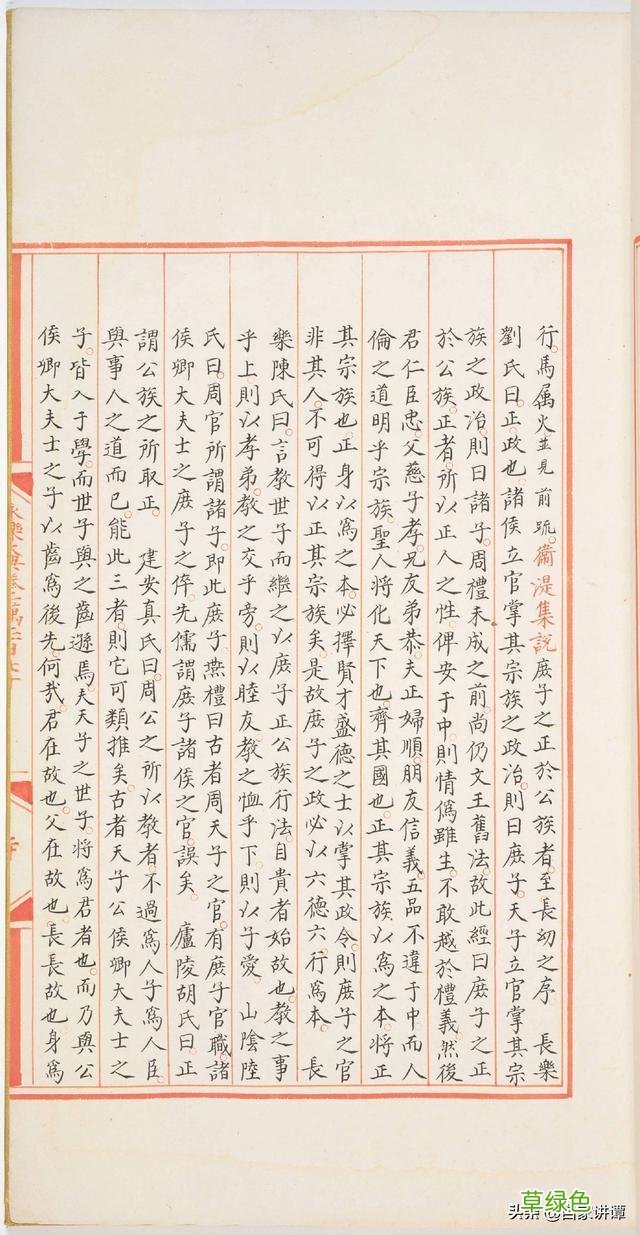 行。馬属火並見前疏。衞湜集説庻子之正於公族者。至長㓜之序。長樂
劉氏曰。正。政也。諸侯立官掌其宗族之政治。則曰庻子。天子立官掌其宗
族之政治。則曰諸子。周禮未成之前。尚仍文王舊法。故此經曰庻子之正
於公族。正者。所以正人之性。俾安于中。則情僞雖生。不敢越於禮義。然後
君仁臣忠。父慈子孝。兄友弟恭。夫正婦順。朋友信義。五品不違于中而人
倫之道明乎宗族。聖人將化天下也。齊其國也。正其宗族以爲之本。將正
其宗族也。正身以爲之本。必擇賢才盛德之士以掌其政令。則庻子之官
非其人。不可得以正其宗族矣。是故庻子之政必以六德六行爲本。長
樂陳氏曰。言教世子而繼之以庻子正公族行法。自貴者始故也。教之事
乎上。則以孝弟。教之交乎旁。則以睦友。教之恤乎下。則以子愛。山陰陸
氏曰。周官所謂諸子。即此庻子。燕禮曰古者周天子之官。有庻子官。職諸
侯卿大夫士之庻子之倅。先儒謂庻子諸侯之官。誤矣。廬陵胡氏曰。正
謂公族之所取正。建安真氏曰。周公之所以教者。不過爲人子爲人臣。
與事人之道而已。能此三者。則它可類推矣。古者天子公侯卿大夫士之
子。皆入于學。而世子與之齒遜焉。夫天子之世子。將爲君者也。而乃與公
侯卿大夫士之子以齒爲後先。何哉。君在故也。父在故也。長長故也身爲
草绿色
头条@吕家讲谭